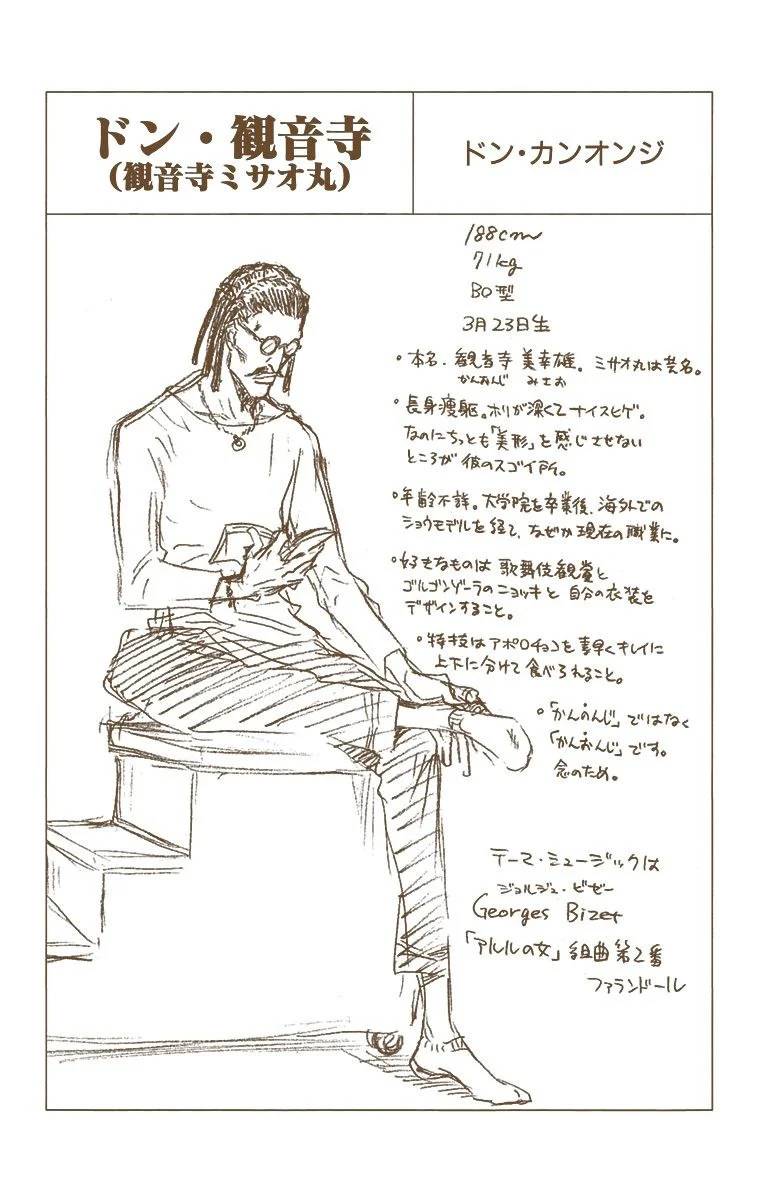 ドン・観音寺
(観音寺ミサオ丸)
ドン・カンオンジ
188cm
71kg
BO型
3月23日生
・本名.観音寺 美幸雄。ミサオ丸は芸名。
かんおんじ みさお
・長身痩躯。ホリが深くてナイスヒゲ。
なのにちっとも「美形」を感じさせない
ところが彼のスゴイ所。
・年齢不詳。大学院を卒業後、海外での
ショウモデルを経て、なぜか現在の職業に。
・好きなものは歌舞伎観賞と
ゴルゴンゾーラのニョッキと自分の衣装を
デザインすること。
・特技はアポロチョコを素早くキレイに
上下に分けて食べられること。
・「かんのんじ」ではなく
「かんおんじ」です。
念のため。
テーマ・ミュージックは
ジョルジュ・ビゼー
Georges Bizet
「アルルの女」組曲第2番
ファランドール